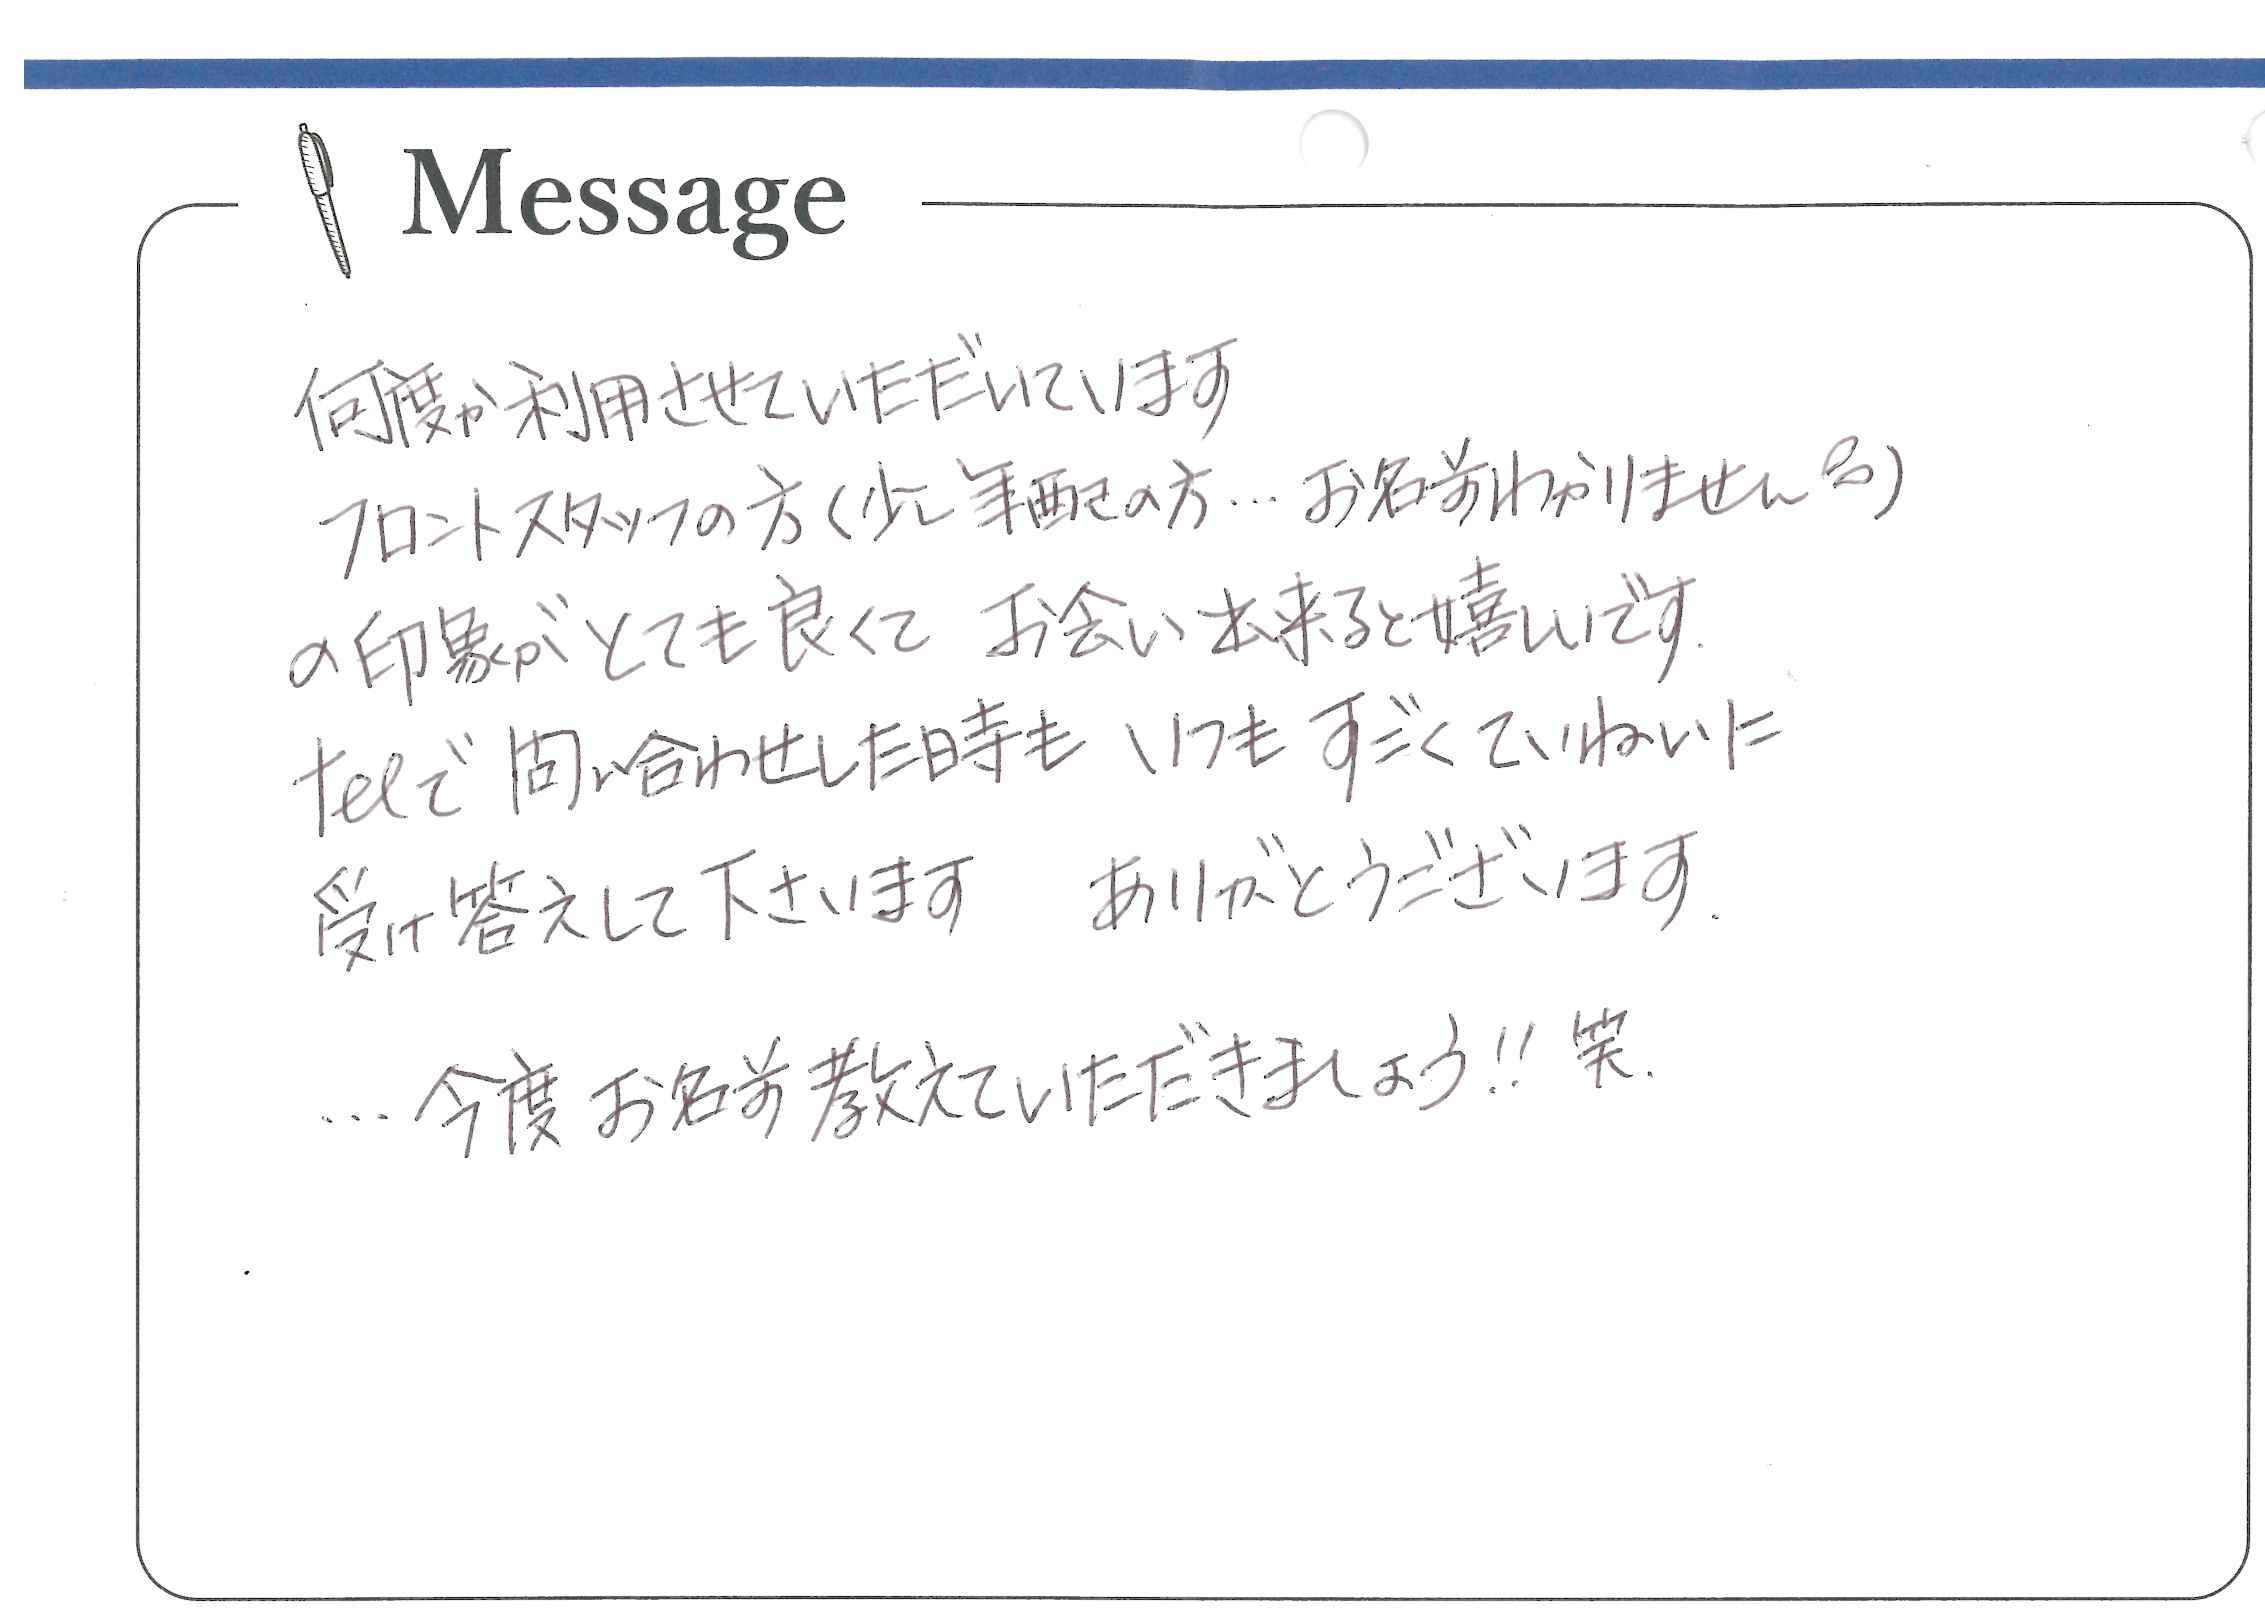 Message
何度か利用させていただいています
フロントスタッフの方(少し年配の方…お名前わかりません)
の印象がとても良くて お会い出来ると嬉しいです.
telで問い合わせした時も いつも すごくていねいに
受け答えして下さいます ありがとうございます.
…今度お名前教えていただきましょう!! 笑.